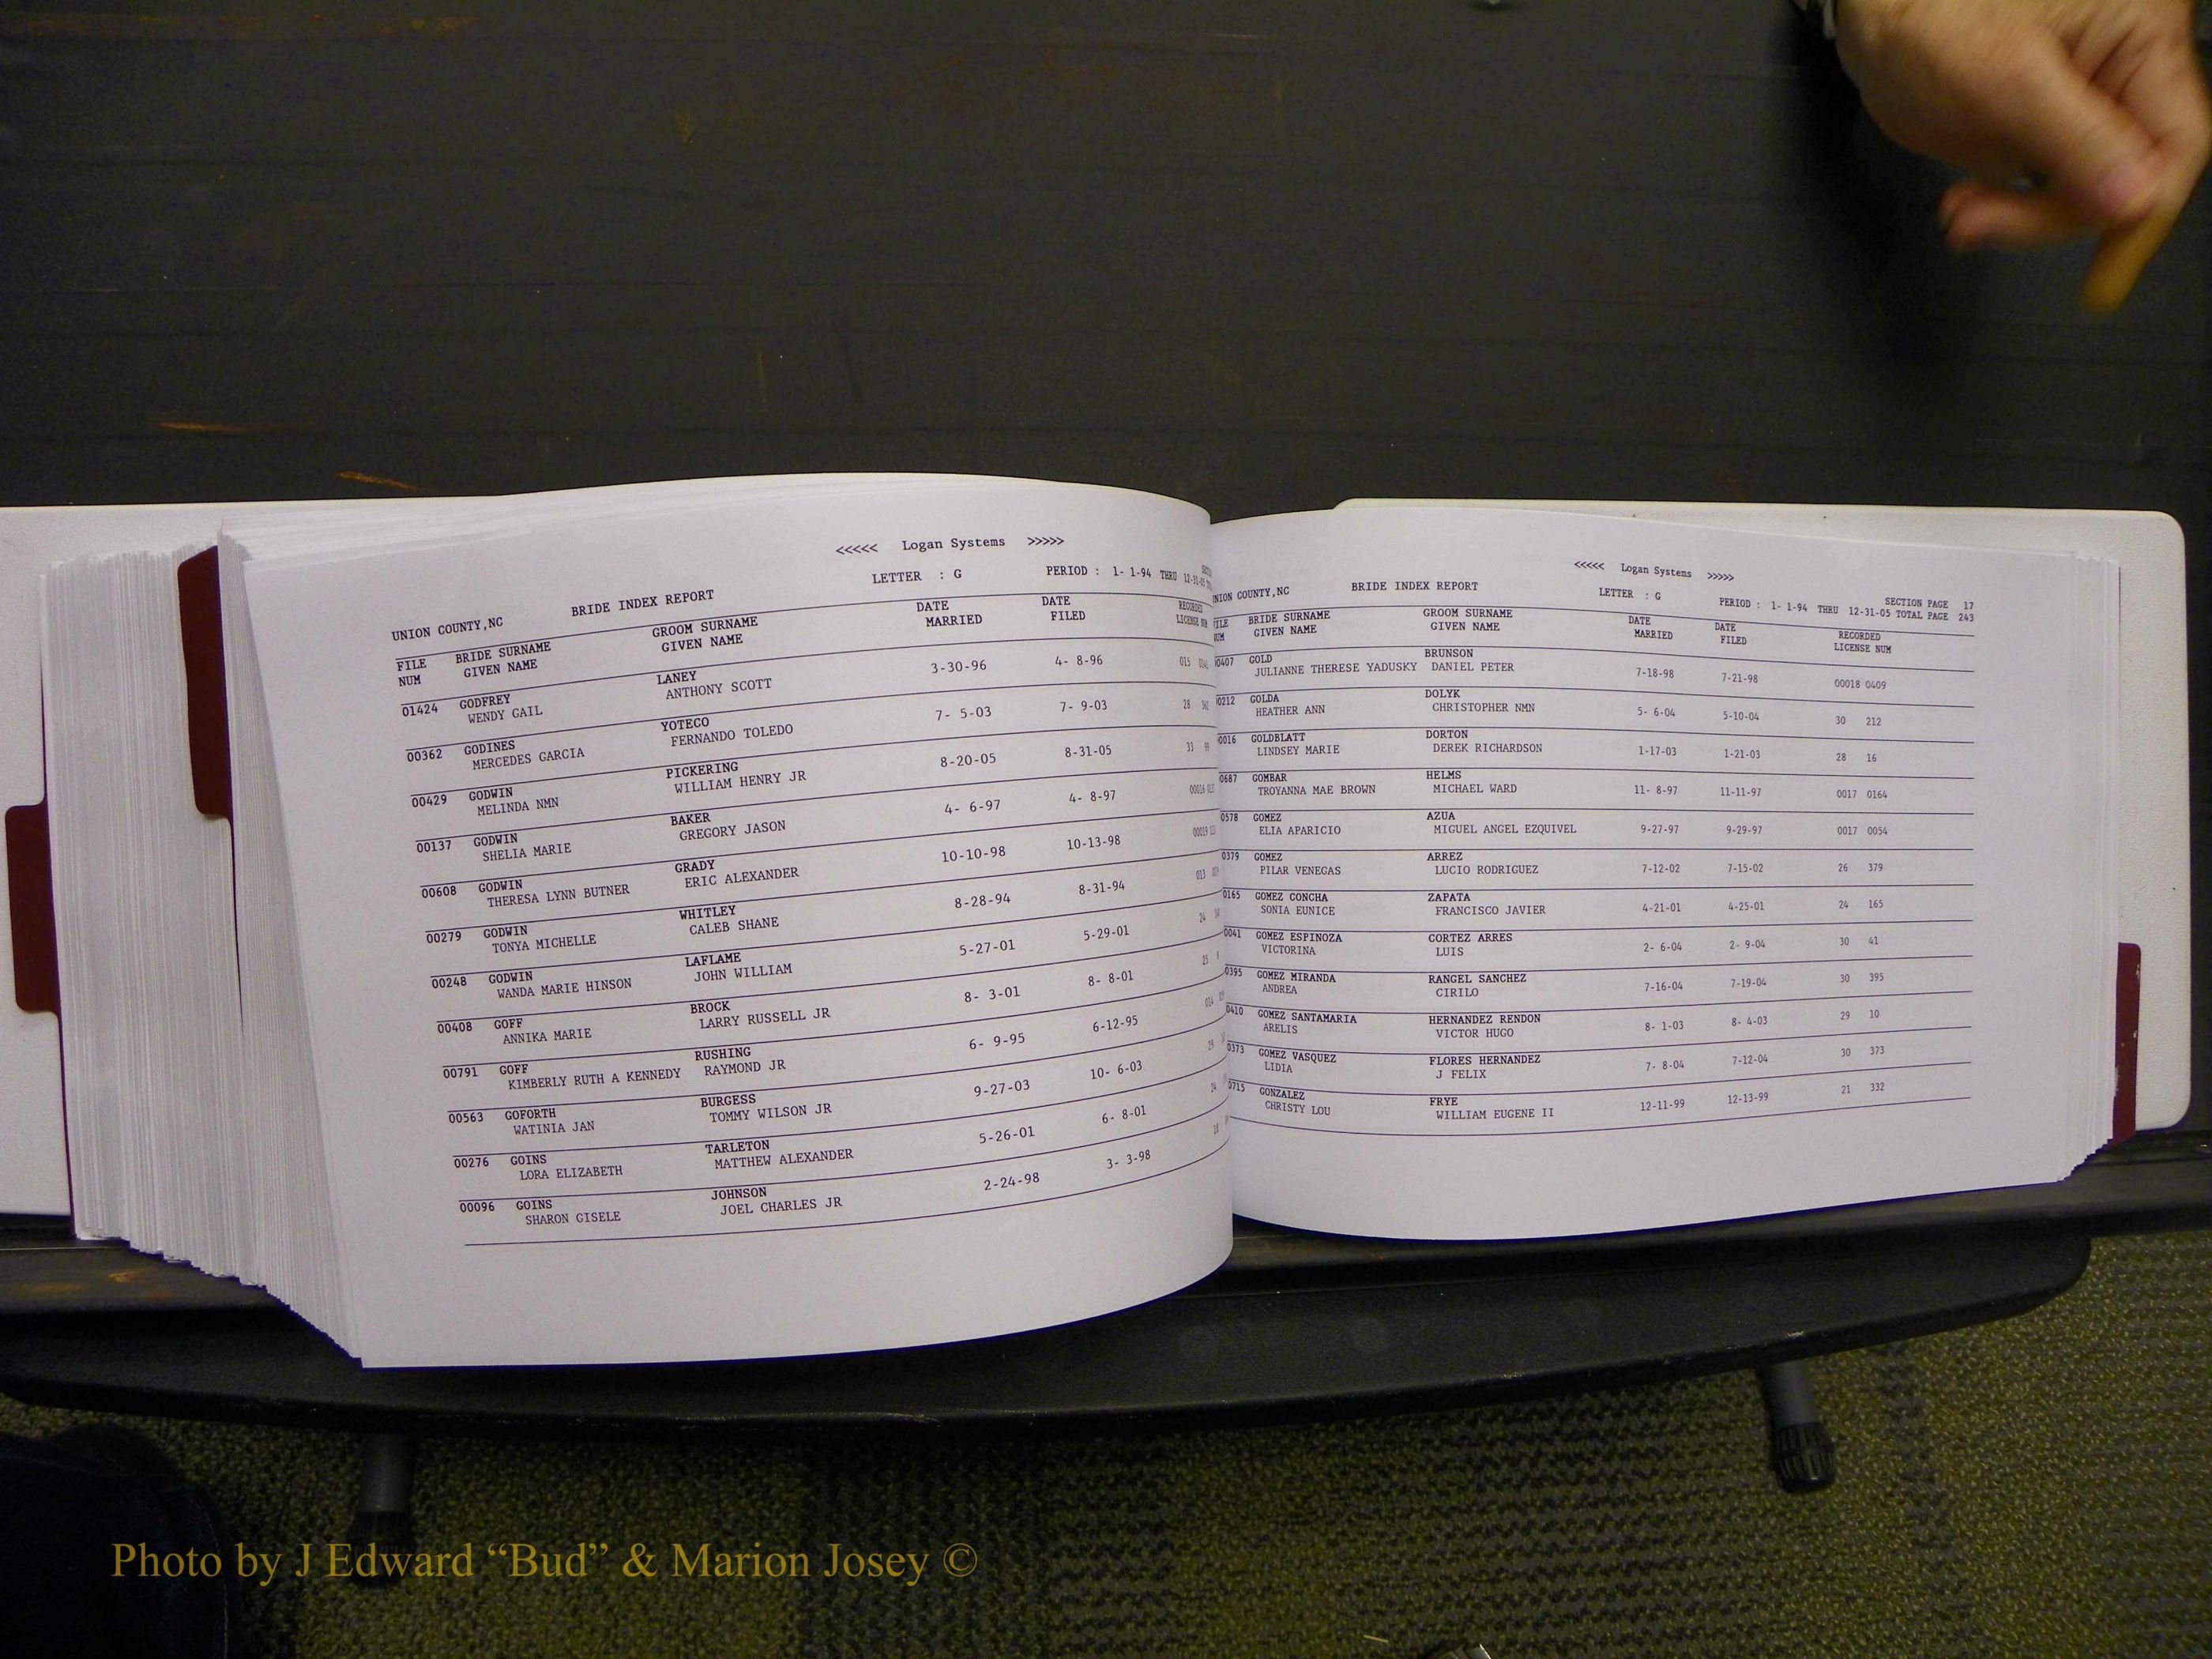 <<<<< Logan Systems >>>>>
UNION COUNTY,NC BRIDE INDEX REPORT LETTER : G PERIOD : 1- 1-94 THRU 12-31-05
FILE BRIDE SURNAME GROOM SURNAME DATE DATE RECORDED
NUM GIVEN NAME GIVEN NAME MARRIED FILED LICENSE NUM
01424 GODFREY LANEY 3-30-96 4- 8-96 015
WENDY GAIL ANTHONY SCOTT
00362 GODINES YOTECO 7- 5-03 7- 9-03 28
MERCEDES GARCIA FERNANDO TOLEDO
00429 GODWIN PICKERING 8-20-05 8-31-05 33
MELINDA NMN WILLIAM HENRY JR
00137 GODWIN BAKER 4- 6-97 4- 8-97 00016
SHELIA MARIE GREGORY JASON
00608 GODWIN GRADY 10-10-98 10-13-98 00019
THERESA LYNN BUTNER ERIC ALEXANDER
00279 GODWIN WHITLEY 8-28-94 8-31-94 013
TONYA MICHELLE CALEB SHANE
00248 GODWIN LAFLAME 5-27-01 5-29-01 24
WANDA MARIE HINSON JOHN WILLIAM
00408 GOFF BROCK 8- 3-01 8- 8-01 25
ANNIKA MARIE LARRY RUSSELL JR
00791 GOFF RUSHING 6- 9-95 6-12-95 014
KIMBERLY RUTH A KENNEDY RAYMOND JR
00563 GOFORTH BURGESS 9-27-03 10- 6-03
WATINIA JAN TOMMY WILSON JR
00276 GOINS TARLETON 5-26-01 6- 8-01 24
LORA ELIZABETH MATTHEW ALEXANDER
00096 GOINS JOHNSON 2-24-98 3- 3-98
SHARON GISELE JOEL CHARLES JR
<<<<< Logan Systems >>>>>
SECTION PAGE 17
UNION COUNTY,NC BRIDE INDEX REPORT LETTER : G PERIOD : 1- 1-94 THRU 12-31-05 TOTAL PAGE 243
FILE BRIDE SURNAME GROOM SURNAME DATE DATE RECORDED
NUM GIVEN NAME GIVEN NAME MARRIED FILED LICENSE NUM
00407 GOLD BRUNSON 7-18-98 7-21-98 00018 0409
JULIANNE THERESE YADUSKY DANIEL PETER
0212 GOLDA DOLYK 5- 6-04 5-10-04 30 212
HEATHER ANN CHRISTOPHER NMN
0016 GOLDBLATT DORTON 1-17-03 1-21-03 28 16
LINDSEY MARIE DEREK RICHARDSON
0687 GOMBAR HELMS 11- 8-97 11-11-97 0017 0164
TROYANNA MAE BROWN MICHAEL WARD
0578 GOMEZ AZUA 9-27-97 9-29-97 0017 0054
ELIA APARICIO MIGUEL ANGEL EZQUIVEL
0379 GOMEZ ARREZ 7-12-02 7-15-02 26 379
PILAR VENEGAS LUCIO RODRIGUEZ
0165 GOMEZ CONCHA ZAPATA 4-21-01 4-25-01 24 165
SONIA EUNICE FRANCISCO JAVIER
0041 GOMEZ ESPINOZA CORTEZ ARRES 2- 6-04 2- 9-04 30 41
VICTORINA LUIS
0395 GOMEZ MIRANDA RANGEL SANCHEZ 7-16-04 7-19-04 30 395
ANDREA CIRILO
0410 GOMEZ SANTAMARIA HERNANDEZ RENDON 8- 1-03 8- 4-03 29 10
ARELIS VICTOR HUGO
0373 GOMEZ VASQUEZ FLORES HERNANDEZ 7- 8-04 7-12-04 30 373
LIDIA J FELIX
0715 GONZALEZ FRYE 12-11-99 12-13-99 21 332
CHRISTY LOU WILLIAM EUGENE II
Photo by J Edward “Bud” & Marion Josey ©